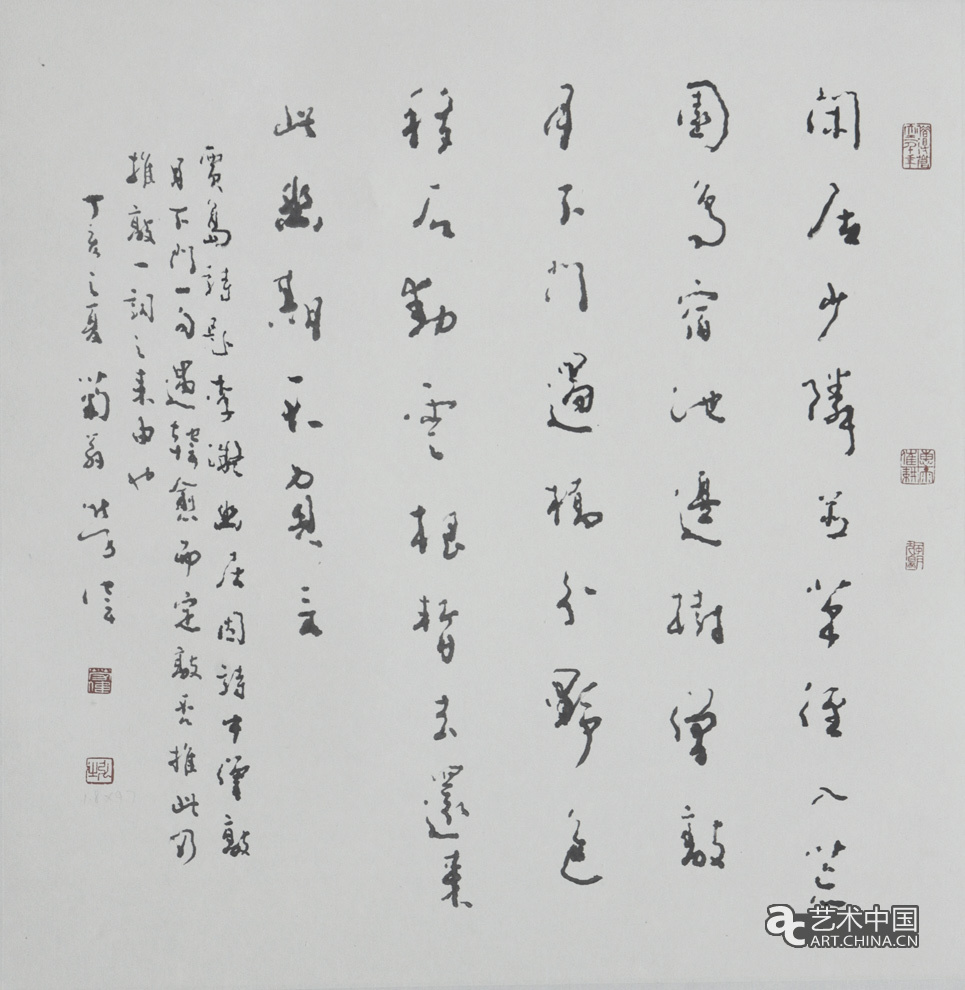 閑居少隣並草徑入荒
園鳥宿池邊樹僧敲
月下門過橋分野色
移石動雲根暫去還來
此幽期不負言
賈島詩題李凝幽居因詩中僧敲
月下門一句遇韓愈而定敲否推此乃
推敲一詞之来由也
丁亥之夏菊翁
艺术中国
ART.CHINA.CN